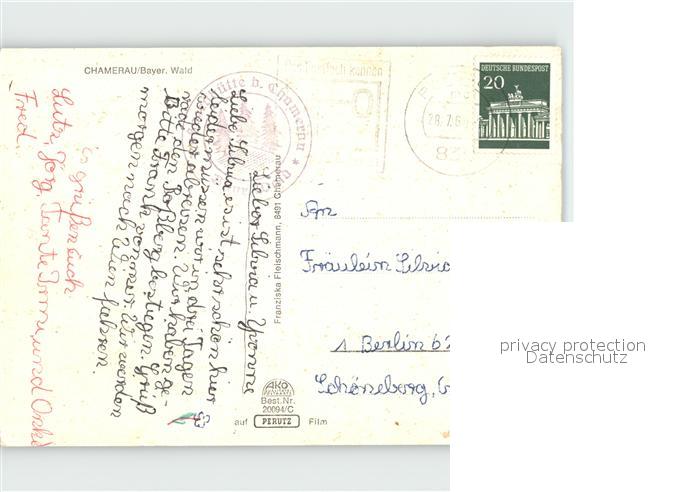 CHAMERAU/Bayer. Wald
hütte b. Chamerau
DEUTSCHE BUNDESPOST
20
28.7.6
Liebe Silvia u. Yvonne
Liebe Silvia es ist sehr schön hier
leider müssen wir in drei Tagen
wieder abreisen. Wir haben ge-
rade den Roßberg bestiegen. Gruß
Bitte Frank von mir. Wir werden
morgen nach Wien fahren.
Es grüßen Euch
Lutz, Jörg, Tante Irmi, und Onkel
Fred.
Franziska Fleischmann, 8491 Chamerau
An
Fräulein Silvia
1 Berlin 62
Schöneberg,
AKO
Best.Nr.
20094/C
auf PERUTZ Film
privacy protection
Datenschutz